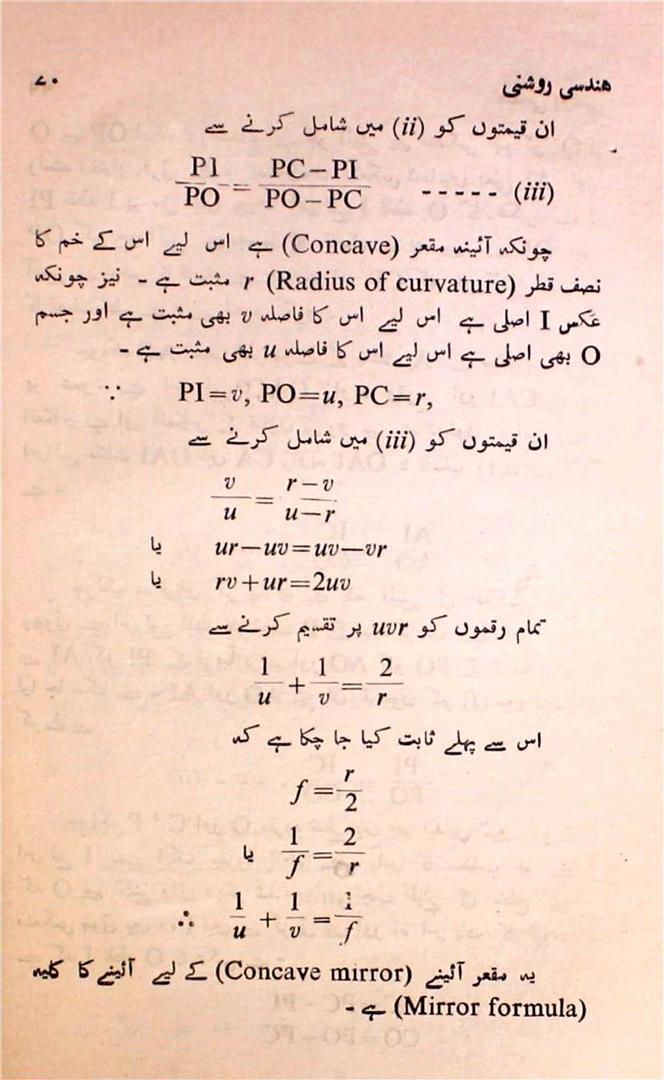 ہندسی روشنی ۷۰
ان قیمتوں کو (ii) میں شامل کرنے سے
P1/PO = PC−PI/PO−PC ----- (iii)
چونکہ آئینہ مقعر (Concave) ہے اس لیے اس کے خم کا
نصف قطر (Radius of curvature) r مثبت ہے - نیز چونکہ
عکس I اصلی ہے اس لیے اس کا فاصلہ v بھی مثبت ہے اور جسم
O بھی اصلی ہے اس لیے اس کا فاصلہ u بھی مثبت ہے -
∵ PI=v, PO=u, PC=r,
ان قیمتوں کو (iii) میں شامل کرنے سے
v/u = r−v/u−r
یا ur−uv=uv−vr
یا rv+ur=2uv
تمام رقموں کو uvr پر تقسیم کرنے سے
1/u + 1/v = 2/r
اس سے پہلے ثابت کیا جا چکا ہے کہ
f = r/2
یا 1/f = 2/r
∴ 1/u + 1/v = 1/f
یہ مقعر آئینے (Concave mirror) کے لیے آئینے کا کلیہ
(Mirror formula) ہے -